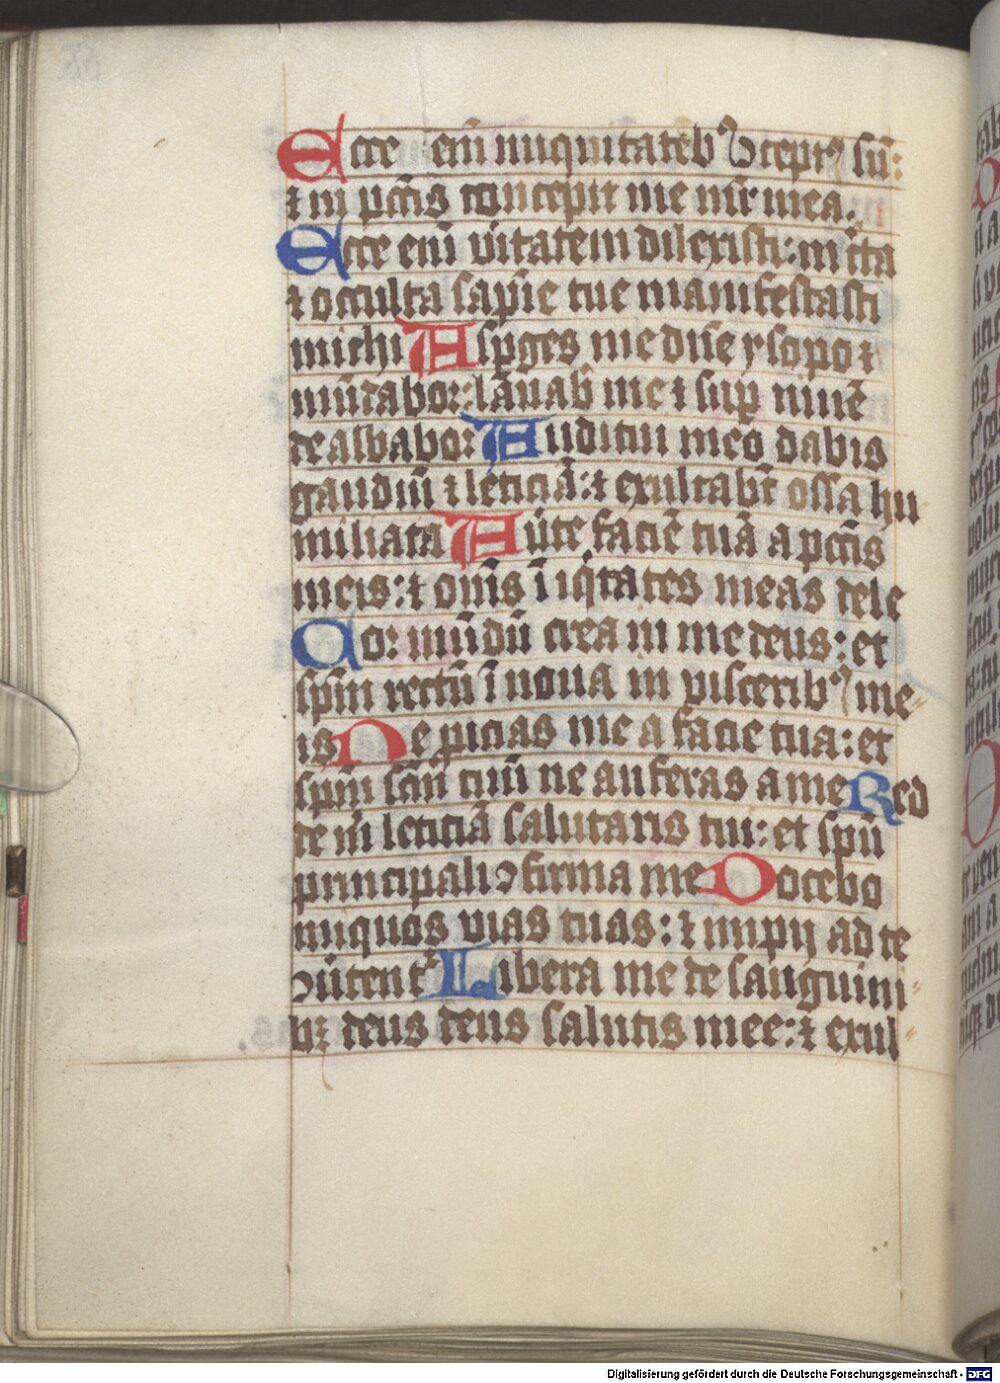 Ecce enī iniquitatebꝰ ꝯceptꝰ sū:
⁊ in pctīs concepit me mr̄ mea.
Ecce enī vītatem dilexisti: incīta
⁊ occulta sapīe tue manifestasti
michi Aspges me dn̄e ysopo ⁊
mūdabor: lauab me ⁊ sup niuē
dealbabor Auditui meo dabis
gaudiū ⁊ leticiā: ⁊ exultabt̄ ossa hu
miliata Aūte faciē tuā a pctīs
meis: ⁊ om̄s īiqtates meas dele
Cor mūdū crea in me deus: et
spm̄ rectū īnoua in visceribꝰ me
is Ne ꝓicias me a facie tua: et
spm̄ scm̄ tuū ne auferas a me Red
de m̄ leticiā salutaris tui: et spū
principali ꝯfirma me Docebo
iniquos vias tuas: ⁊ impij ad te
ꝯūtent᷑ Libera me de sanguini
bꝫ deus deus salutis mee: ⁊ exul
Digitalisierung gefördert durch die Deutsche Forschungsgemeinschaft - DFG